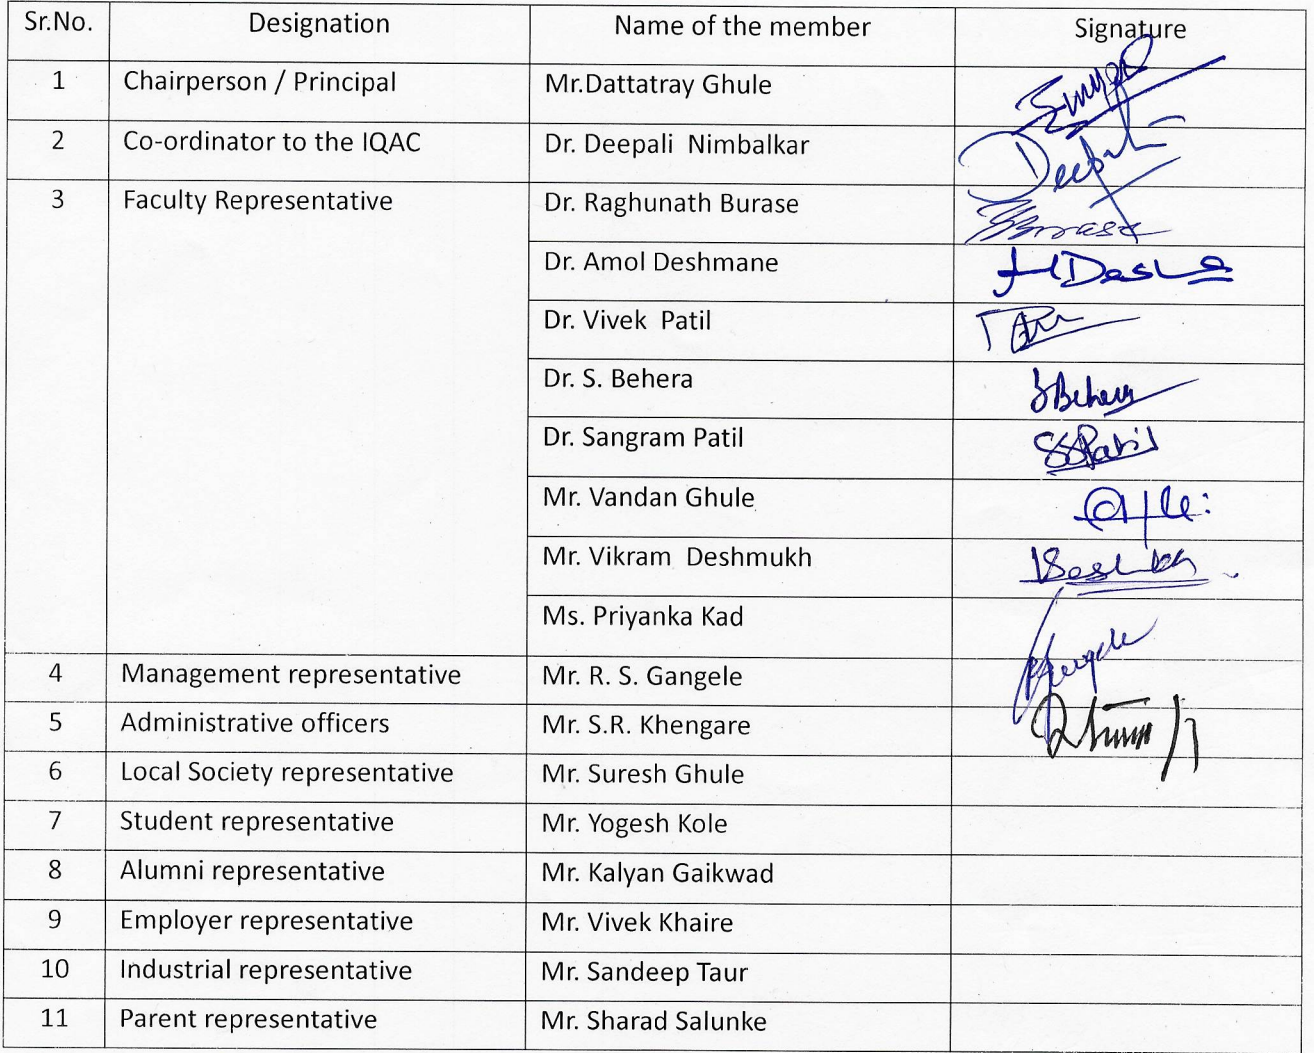 Sr.No. Designation Name of the member Signature
1 Chairperson / Principal Mr.Dattatray Ghule
2 Co-ordinator to the IQAC Dr. Deepali Nimbalkar Deepali
3 Faculty Representative Dr. Raghunath Burase Burase
Dr. Amol Deshmane
Dr. Vivek Patil
Dr. S. Behera SBehera
Dr. Sangram Patil SSPatil
Mr. Vandan Ghule
Mr. Vikram Deshmukh
Ms. Priyanka Kad
4 Management representative Mr. R. S. Gangele
5 Administrative officers Mr. S.R. Khengare
6 Local Society representative Mr. Suresh Ghule
7 Student representative Mr. Yogesh Kole
8 Alumni representative Mr. Kalyan Gaikwad
9 Employer representative Mr. Vivek Khaire
10 Industrial representative Mr. Sandeep Taur
11 Parent representative Mr. Sharad Salunke